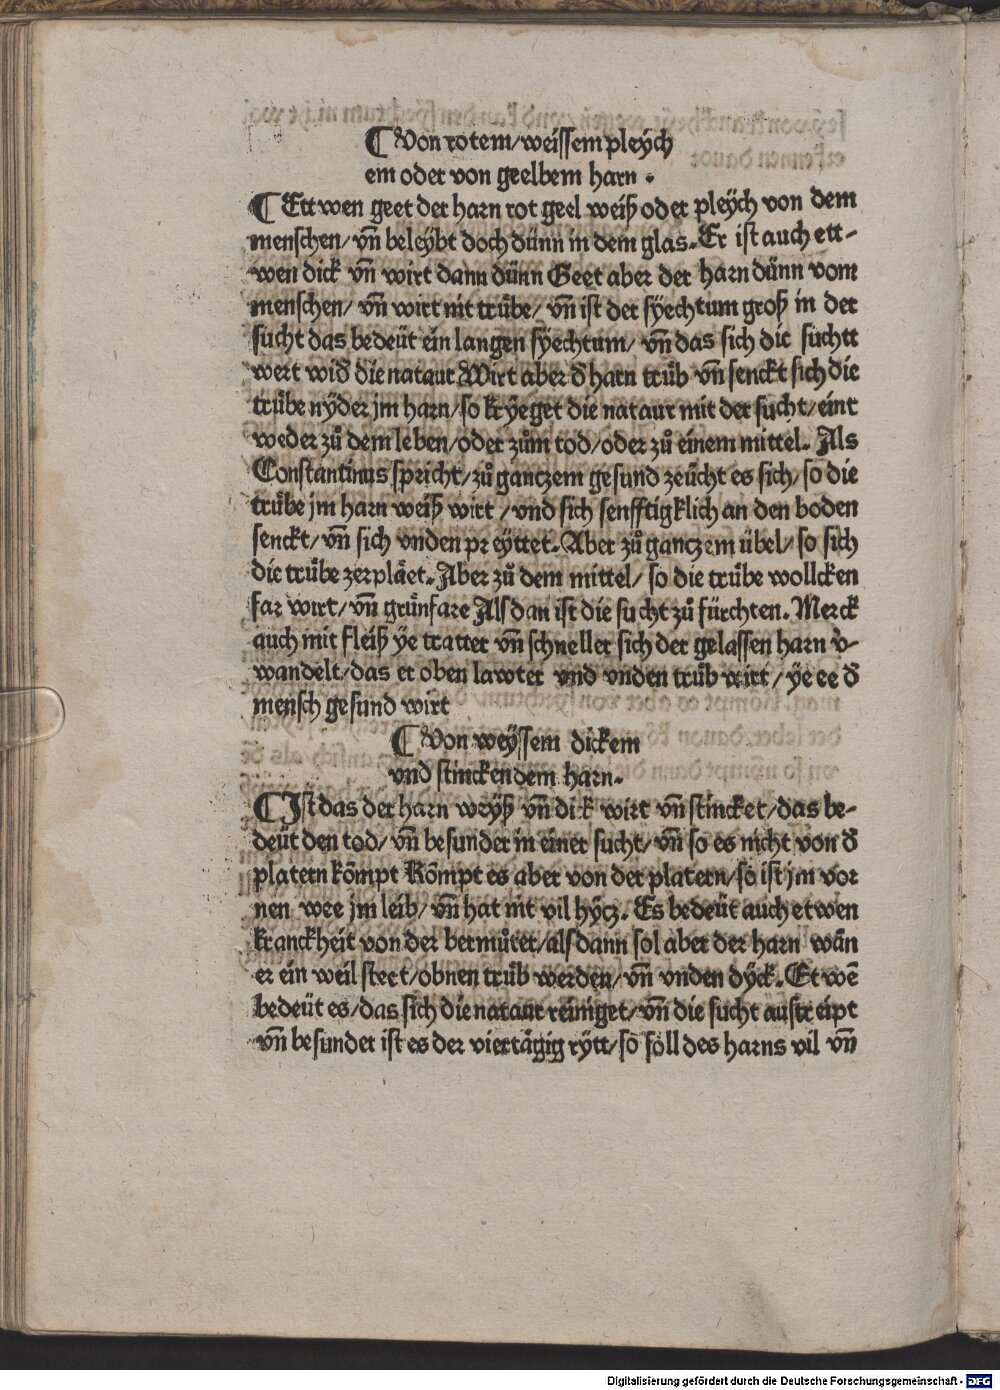 ⸿ Von rotem/weissem pleÿch
em oder von geelbem harn.
⸿ Ettwen geet der harn rot geel weiß oder pleÿch von dem
menschen/ vñ beleÿbt doch dünn in dem glas. Er ist auch ett-
wen dick vñ wirt dann dünn Geet aber der harn dünn vom
menschen/ vñ wirt nit trübe/ vñ ist der sÿechtum groß in der
sucht das bedeüt ein langen sÿechtum/ vñ das sich die suchtt
wert wid̕ die nataur Wirt aber d̕ harn trüb vñ senckt sich die
trübe nÿder jm harn/ so krÿeget die nataur mit der sucht/ eint
weder zů dem leben/ oder zům tod/ oder zů einem mittel. Als
Constantinus spricht/ zů gantzem gesund zeücht es sich/ so die
trübe jm harn weiß wirt/ vnd sich senfftigklich an den boden
senckt/ vñ sich vnden preÿttet. Aber zů gantzem übel/ so sich
die trübe zerpläet. Aber zů dem mittel/ so die trübe wollcken
far wirt/ vñ grünfare Als dan ist die sucht zů fürchten. Merck
auch mit fleiß ÿe tratter vñ schneller sich der gelassen harn v̕-
wandelt/ das er oben lawter vnd vnden trüb wirt/ ÿe ee d̕
mensch gesund wirt
⸿ Von weÿssem dickem
vnd stinckendem harn.
⸿ Ist das der harn weÿß vñ dik wirt vñ stincket/ das be-
deüt den tod/ vñ besunder in einer sucht/ vñ so es nicht von d̕
platern kõmpt Kõmpt es aber von der platern/ so ist jm vor
nen wee jm leib/ vñ hat nit vil hÿtz. Es bedeüt auch etwen
kranckheit von der bermůter/ als dann sol aber der harn wãn
er ein weil steet/ obnen trüb werden/ vñ vnden dÿck. Etwẽ
bedeüt es/ das sich die nataur reiniget/ vñ die sucht austreipt
vñ besunder ist es der viertägig rÿtt/ so söll des harns vil vñ